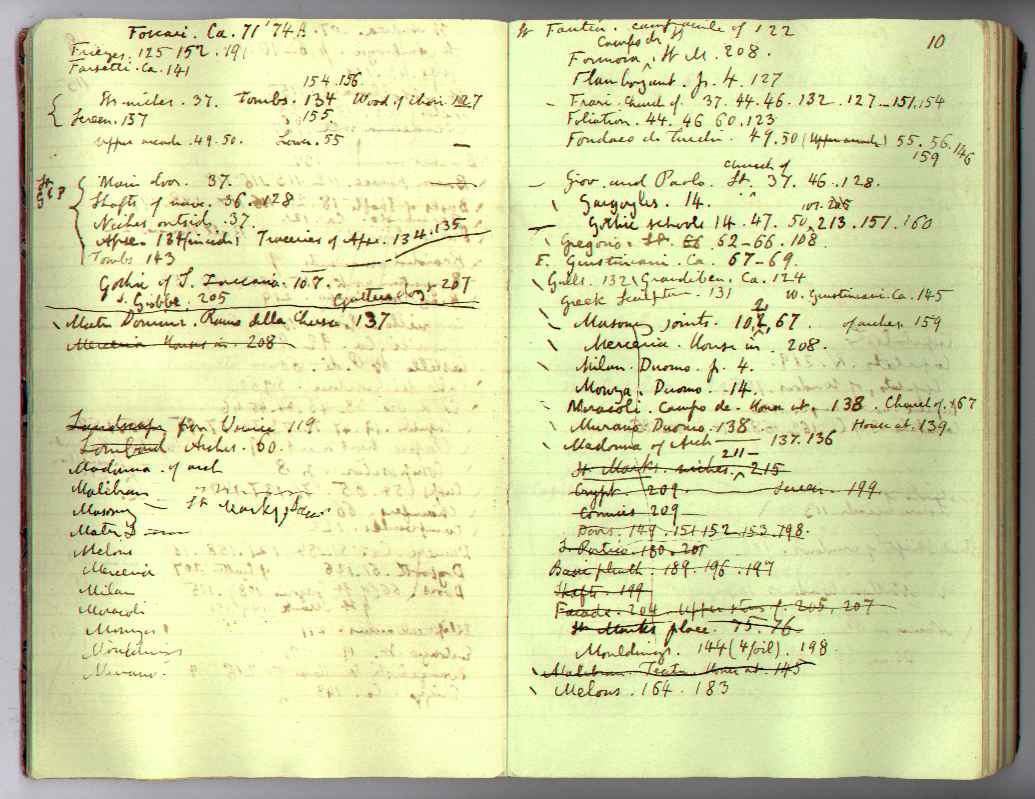 Foscari. Ca. 71 '74A
Friezes. 125 152. 191
Farsetti. Ca. 141
154. 156
niches. 37. Tombs. 134 Wood of Choir 127
Screen. 137 155
Upper arcade. 49. 50. Lower. 55
St G & P
Main door. 37.
Shafts of nave. 36. 128
Niches outside. 37.
Apse. 134. 135
Traceries of Apse.
Tombs 143
Gothic of S. Zaccaria. 107. 207
S. Giobbe. 205
Mater Domini. Ramo della Chiesa. 137
Merceria House in. 208
Landscape from Venice 119.
Lombard Arches. 60.
Madonna. of arch
Malibran
Masonry St Marks place
Mater D
Melons
Merceria
Milan
Miracoli
Monza
Mouldings
Murano
10
St Fantin. campanile of 122
Campo di
Formosa. St M. 208.
Flamboyant. p. 4. 127
Frari. Church of. 37. 44. 46. 132. 127 - 151. 154
Foliation. 44. 46 60. 123
Fondaco de Turchi. 49. 50 (Upper arcade) 55. 56. 146
159
Church of
Giov. and Paolo. St. 37. 46. 128.
Gargoyles. 14.
Gothic schools 14. 47. 50, 213. 151. 160
Gregorio. St. 62-66. 108.
E. Giustiniani. Ca. 67-69.
Gulls. 132 Grandiben. Ca. 124
Greek Sculpture. 131 W. Giustiniani. Ca. 145
Masonry joints. 67 of arches. 159
Merceria. House in. 208.
Milan. Duomo. p. 4.
Monza. Duomo. 14.
Miracoli. Campo de. House at. 138. Church of. 167
Murano Duomo. 138 House at. 139
Madonna of Arch 137. 136
211-
St Marks. niches. 215
Crypt. 209. Screen. 199.
Cornices 209
Doors. 149. 151 152. 153. 198.
S. Portico. 180. 201
Base plinth. 189. 196. 197
Shafts. 199
Facade. 204. Upper story. 205, 207
St Marks place. 75. 76
Mouldings. 144 (4foil). 198.
Malibran. Teatro. House at. 145
Melons. 164. 183